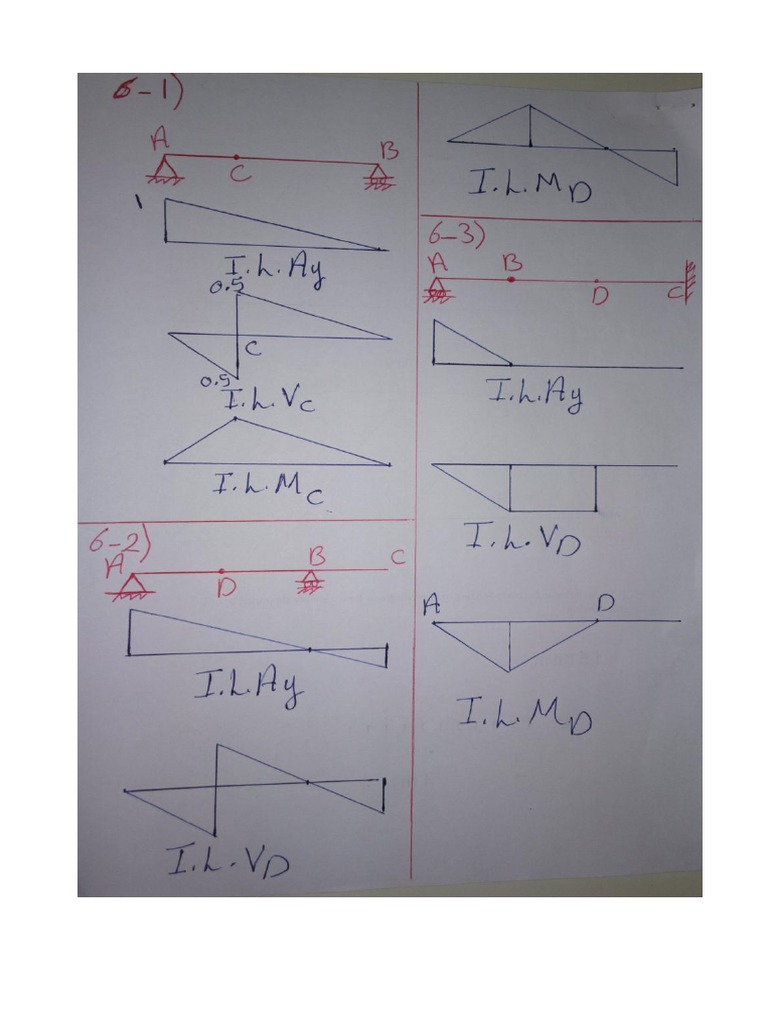 6-1)
A
B
C
1
I.L.Ay
0.5
C
0.5
I.L.Vc
I.L.Mc
6-2)
A
D
B
C
I.L.Ay
I.L.VD
I.L.MD
6-3)
A
B
D
C
I.L.Ay
I.L.VD
A
D
I.L.MD